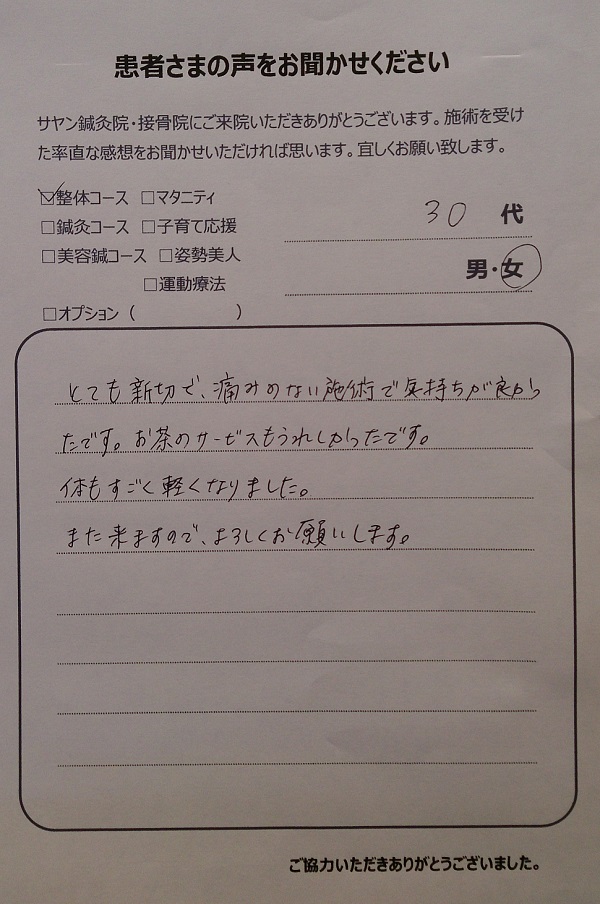 患者さまの声をお聞かせください
サヤン鍼灸院・接骨院にご来院いただきありがとうございます。施術を受け
た率直な感想をお聞かせいただければ思います。宜しくお願い致します。
☑整体コース □マタニティ
□鍼灸コース □子育て応援
□美容鍼コース □姿勢美人
□運動療法
□オプション（　　　　　　）
30 代
男・女
とても新切で、痛みのない施術で気持ちが良かっ
たです。お茶のサービスもうれしかったです。
体もすごく軽くなりました。
また来ますので、よろしくお願いします。
ご協力いただきありがとうございました。